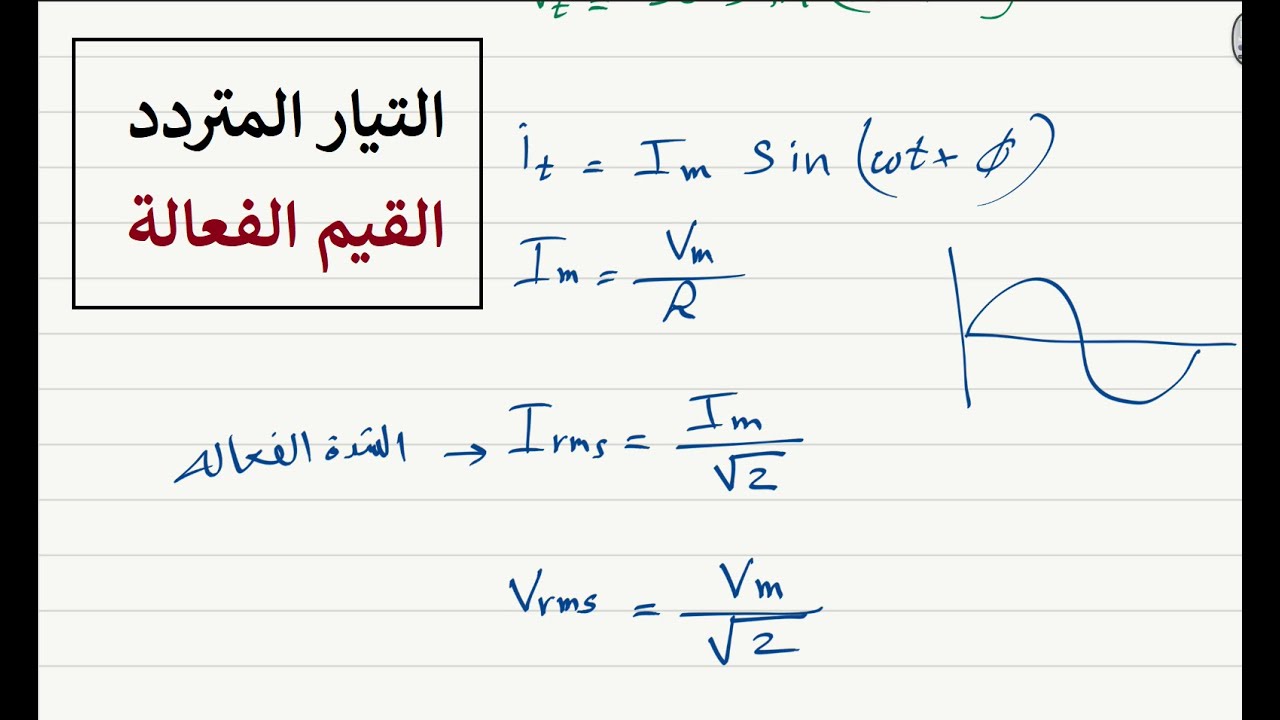 التيار المتردد
القيم الفعالة
i_t = I_m sin (ωt + φ)
I_m = V_m / R
الشدة الفعاله → I_rms = I_m / √2
V_rms = V_m / √2